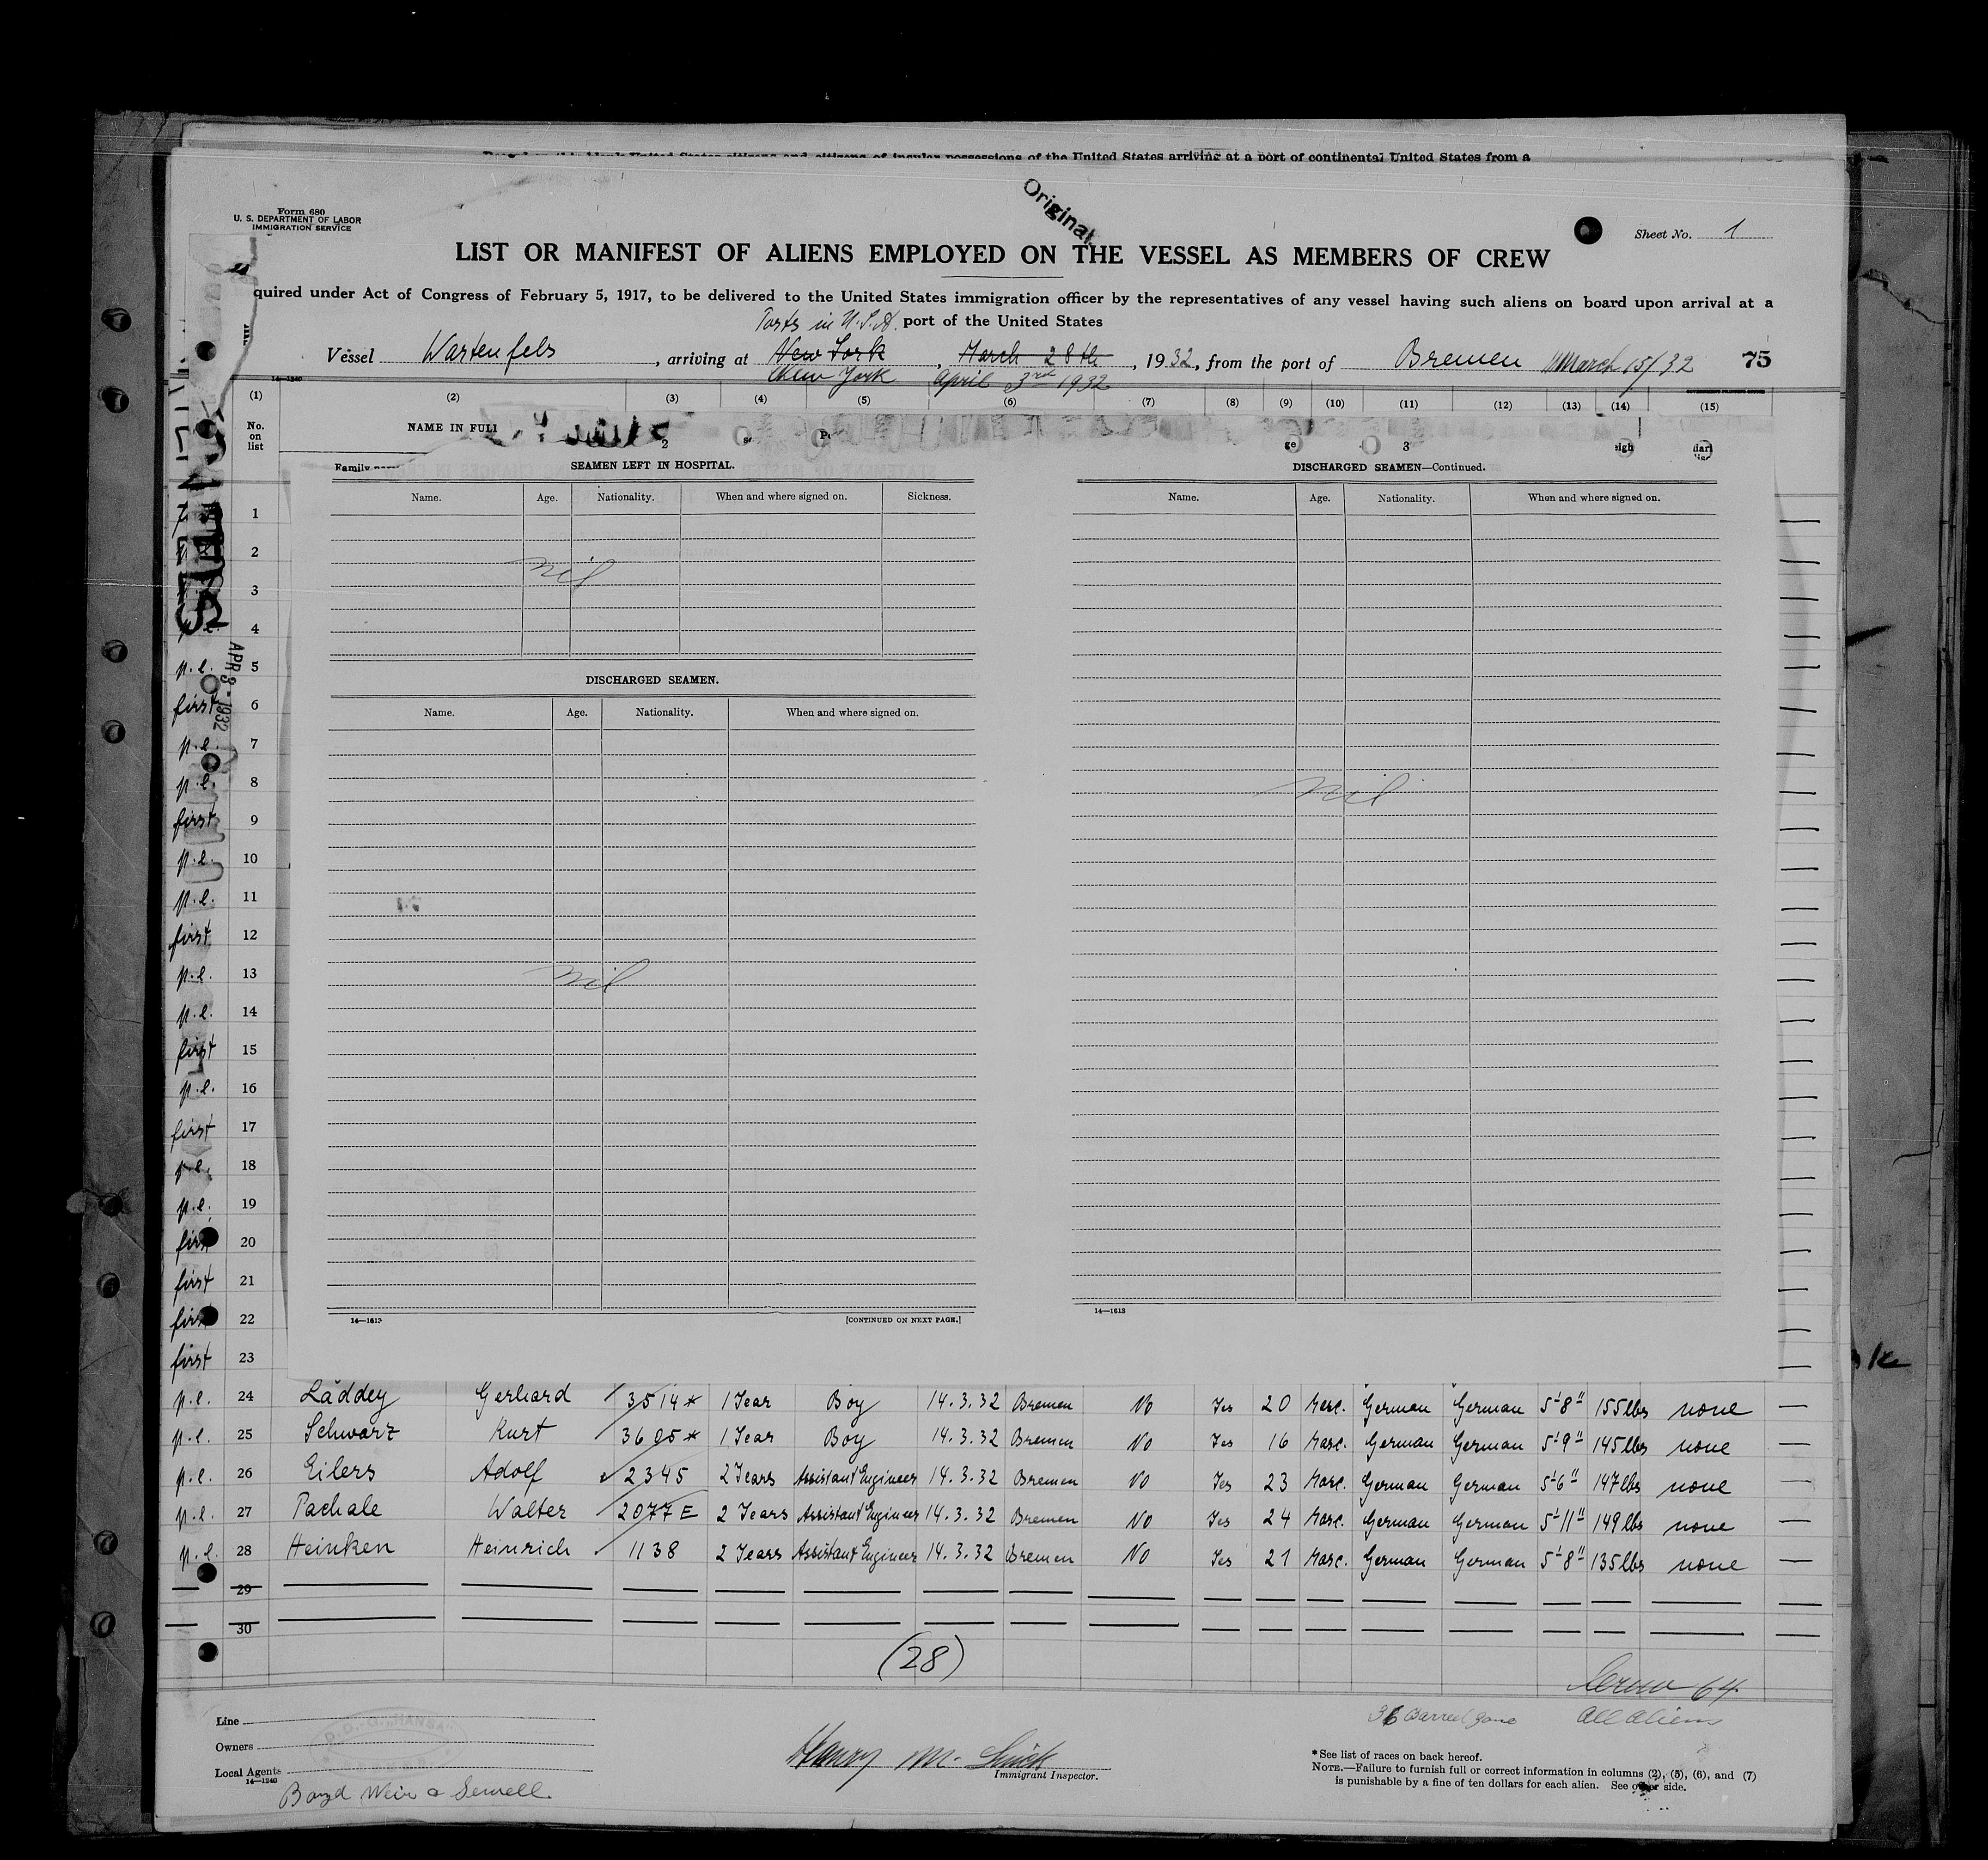 Original
Form 680
U. S. DEPARTMENT OF LABOR
IMMIGRATION SERVICE
Sheet No. 1
LIST OR MANIFEST OF ALIENS EMPLOYED ON THE VESSEL AS MEMBERS OF CREW
quired under Act of Congress of February 5, 1917, to be delivered to the United States immigration officer by the representatives of any vessel having such aliens on board upon arrival at a
Ports in U.S.A. port of the United States
Vessel Wartenfels, arriving at New York, March 28th, 1932, from the port of Bremen March 15/32 75
New York April 3rd 1932
14—1240
(1) (2) (3) (4) (5) (6) (7) (8) (9) (10) (11) (12) (13) (14) (15)
No. on list
NAME IN FULL
2
3
Family
SEAMEN LEFT IN HOSPITAL.
Name. Age. Nationality. When and where signed on. Sickness.
nil
DISCHARGED SEAMEN.
Name. Age. Nationality. When and where signed on.
nil
14—1613
[CONTINUED ON NEXT PAGE.]
DISCHARGED SEAMEN—Continued.
Name. Age. Nationality. When and where signed on.
nil
14—1613
APR 3 - 1932
1
2
3
4
p.l. 5
first 6
p.l. 7
p.l. 8
first 9
p.l. 10
p.l. 11
first 12
p.l. 13
p.l. 14
first 15
p.l. 16
first 17
p.l. 18
p.l. 19
first 20
first 21
first 22
first 23
p.l. 24 Läddey Gerhard 3514* 1 Year Boy 14.3.32 Bremen No Yes 20 Masc. German German 5'8" 155lbs none —
p.l. 25 Schwarz Kurt 3605* 1 Year Boy 14.3.32 Bremen No Yes 16 Masc. German German 5'9" 145lbs none —
p.l. 26 Eilers Adolf 2345 2 Years Assistant Engineer 14.3.32 Bremen No Yes 23 Masc. German German 5'6" 147lbs none —
p.l. 27 Pachale Walter 2077E 2 Years Assistant Engineer 14.3.32 Bremen No Yes 24 Masc. German German 5'11" 149lbs none —
p.l. 28 Heinken Heinrich 1138 2 Years Assistant Engineer 14.3.32 Bremen No Yes 21 Masc. German German 5'8" 135lbs none —
29
30
(28)
Crew 64
All aliens
Line
Owners
Local Agents
14—1240
D.D.-G. „HANSA"
Boyd Weir & Sewell
Henry M.
Immigrant Inspector.
*See list of races on back hereof.
NOTE.—Failure to furnish full or correct information in columns (2), (5), (6), and (7)
is punishable by a fine of ten dollars for each alien. See other side.